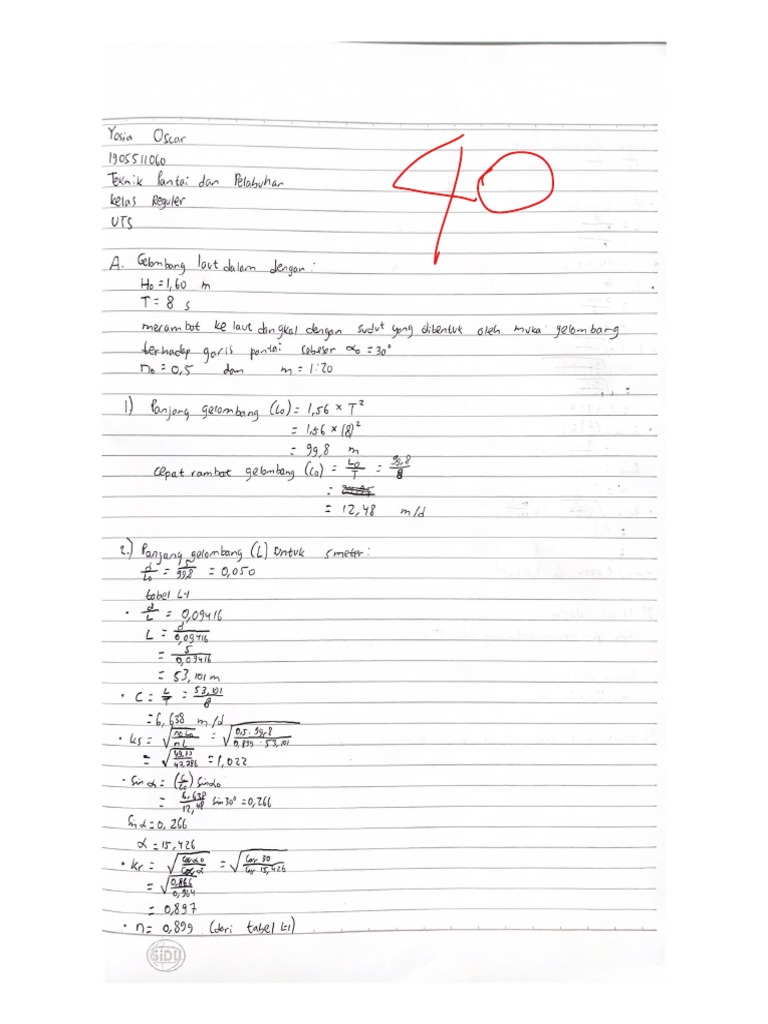 Yosia Oscar
1905511060
Teknik Pantai dan Pelabuhan
Kelas Reguler
UTS
40
A. Gelombang laut dalam dengan:
H₀ = 1,60 m
T = 8 s
merambat ke laut dangkal dengan sudut yang dibentuk oleh muka gelombang
terhadap garis pantai sebesar α₀ = 30°
n₀ = 0,5 dan m = 1:20
1) Panjang gelombang (L₀) = 1,56 × T²
= 1,56 × (8)²
= 99,8 m
Cepat rambat gelombang (C₀) = L₀/T = 99,8/8
=
= 12,48 m/d
2.) Panjang gelombang (L) Untuk 5 meter:
d/L₀ = 5/99,8 = 0,050
tabel L-1
• d/L = 0,09416
L = d/0,09416
= 5/0,09416
= 53,101 m
• C = L/T = 53,101/8
= 6,638 m/d
• ks = √(n₀.L₀/n.L) = √(0,5 . 99,8/0,899 . 53,101)
= 1,022
• Sin α = (C/C₀) Sin α₀
= 6,638/12,48 sin 30° = 0,266
Sin α = 0,266
α = 15,426
• kr = √(cos α₀/cos α) = √(Cos 30/Cos 15,426)
= √(0,866/0,964)
= 0,897
• n = 0,899 (dari tabel L-1)
SIDU